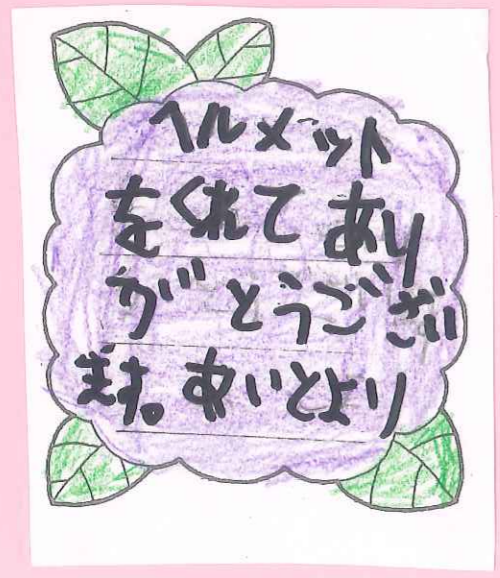 ヘルメット
をくれてあり
がとうござい
ます。あいとより